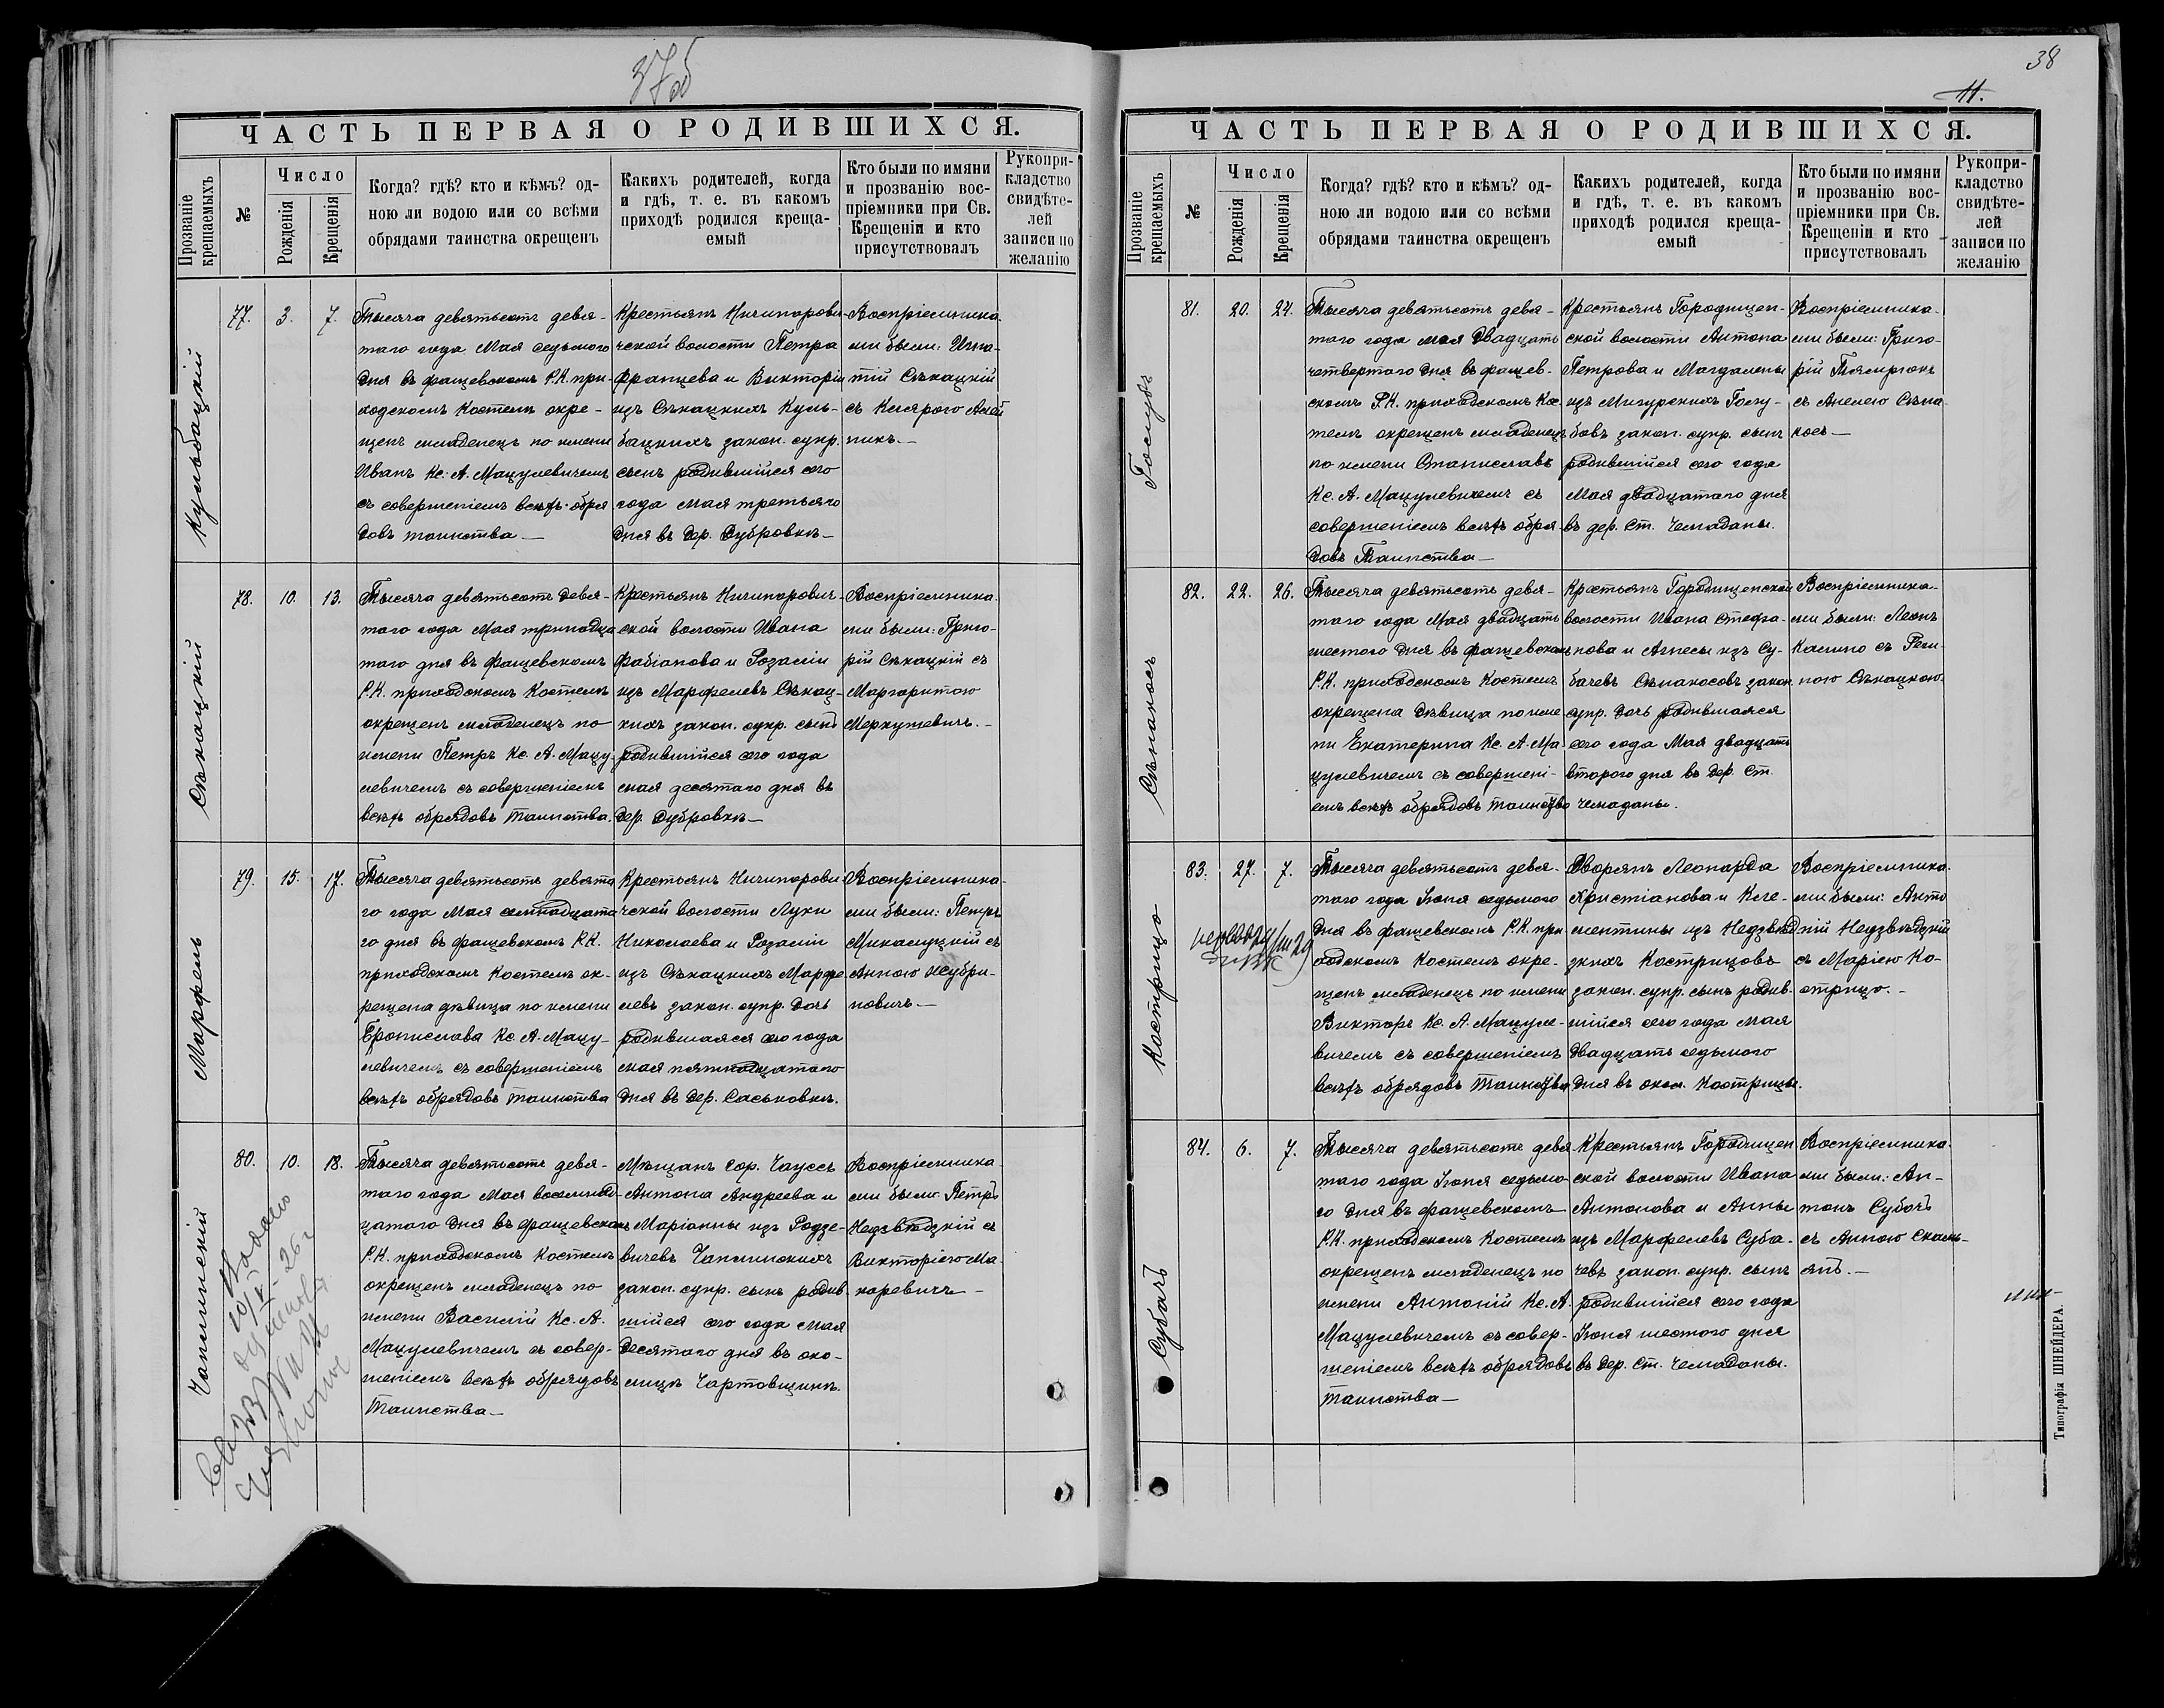 37об
ЧАСТЬ ПЕРВАЯ О РОДИВШИХСЯ.
Прозваніе крещаемыхъ
№
Число
Рожденія
Крещенія
Когда? гдѣ? кто и кѣмъ? од-
ною ли водою или со всѣми
обрядами таинства окрещенъ
Какихъ родителей, когда
и гдѣ, т. е. въ какомъ
приходѣ родился креща-
емый
Кто были по имяни
и прозванію вос-
пріемники при Св.
Крещеніи и кто
присутствовалъ
Рукопри-
кладство
свидѣте-
лей
записи по
желанію
Кульбацкій
77.
3.
7.
Тысяча девятьсотъ девя-
таго года Мая седьмого
дня въ фащевскомъ Р.К. при-
ходскомъ Костелѣ окре-
щенъ младенецъ по имени
Иванъ Кс. А. Мацулевичемъ
съ совершеніемъ всѣхъ обря
довъ таинства —
Крестьянъ Ничипорови-
ческой волости Петра
Францева и Викторіи
изъ Сѣкацкихъ Куль-
бацкихъ закон. супр.
сынъ родившійся сего
года мая третьяго
дня въ дер. Дубровкѣ —
Воспріемника-
ми были: Игна-
тій Сѣкацкій
съ
Сѣкацкій
78.
10.
13.
Тысяча девятьсотъ девя-
таго года Мая тринадца
таго дня въ Фащевскомъ
Р.К. приходскомъ Костелѣ
окрещенъ младенецъ по
имени Петръ Кс. А. Мацу-
левичемъ съ совершеніемъ
всѣхъ обрядовъ таинства.
Крестьянъ Ничипорович-
ской волости Ивана
Фабіанова и Розаліи
изъ Марфелевъ Сѣкац-
кихъ закон. супр. сынъ
родившійся сего года
мая десятаго дня въ
дер. Дубровкѣ —
Воспріемника-
ми были: Григо-
рій Сѣкацкій съ
Маргаритою
Меркушевичъ. —
Марфель
79.
15.
17.
Тысяча девятьсотъ девята
го года Мая семнадцата
го дня въ фащевскомъ Р.К.
приходскомъ Костелѣ ок-
рещена дѣвица по имени
Бронислава Кс. А. Мацу-
левичемъ съ совершеніемъ
всѣхъ обрядовъ таинства
Крестьянъ Ничипорови-
ческой волости Луки
Николаева и Розаліи
изъ Сѣкацкихъ Марфе
левъ закон. супр. дочь
родившаяся сего года
мая пятнадцатаго
дня въ дер. Саськовкѣ.
Воспріемника-
ми были: Петръ
Микалуцкій съ
Анною
новичъ. —
Чаплинскій
80.
10.
18.
Тысяча девятьсотъ девя-
таго года Мая восемнад-
цатаго дня въ фащевскомъ
Р.К. приходскомъ Костелѣ
окрещенъ младенецъ по
имени Василій Кс. А.
Мацулевичемъ съ совер-
шеніемъ всѣхъ обрядовъ
Таинства —
Мѣщанъ гор. Чаусъ
Антона Андреева и
Маріанны изъ Родзе-
вичевъ Чаплинскихъ
закон. супр. сынъ родив-
шійся сего года мая
десятаго дня въ око-
лицѣ Чартовщинѣ.
Воспріемника-
ми были: Петръ
Недзвѣдзкій съ
Викторіею Ма-
каревичъ —
38
11.
ЧАСТЬ ПЕРВАЯ О РОДИВШИХСЯ.
Прозваніе крещаемыхъ
№
Число
Рожденія
Крещенія
Когда? гдѣ? кто и кѣмъ? од-
ною ли водою или со всѣми
обрядами таинства окрещенъ
Какихъ родителей, когда
и гдѣ, т. е. въ какомъ
приходѣ родился креща-
емый
Кто были по имяни
и прозванію вос-
пріемники при Св.
Крещеніи и кто
присутствовалъ
Рукопри-
кладство
свидѣте-
лей
записи по
желанію
Голубъ
81.
20.
24.
Тысяча девятьсотъ девя-
таго года мая двадцать
четвертаго дня въ фащев-
скомъ Р.К. приходскомъ Кос
телѣ окрещенъ младенецъ
по имени Станиславъ
Кс. А. Мацулевичемъ съ
совершеніемъ всѣхъ обря-
довъ Таинства —
Крестьянъ Городищен-
ской волости Антона
Петрова и Магдалены
изъ Мигурскихъ Голу-
бовъ закон. супр. сынъ
родившійся сего года
Мая двадцатаго дня
въ дер. Ст. Чемаданы.
Воспріемника-
ми были: Григо-
рій
съ Анелею Сѣпа-
косъ —
Сѣпакосъ
82.
22.
26.
Тысяча девятьсотъ девя-
таго года Мая двадцать
шестого дня въ фащевскомъ
Р.К. приходскомъ Костелѣ
окрещена дѣвица по име
ни Екатерина Кс. А. Ма
цулевичемъ съ совершені-
емъ всѣхъ обрядовъ таинства
Крестьянъ Городищенской
волости Ивана Стефа-
нова и Агнесы изъ Су-
бачевъ Сѣпакосовъ закон.
супр. дочь родившаяся
сего года Мая двадцать
второго дня въ дер. Ст.
Чемаданы.
Воспріемника-
ми были: Леонъ
Калино съ Реги-
ною Сѣкацкою.
Кострицо
83.
27.
7.
Тысяча девятьсотъ девя-
таго года Іюня седьмого
дня въ фащевскомъ Р.К. при
ходскомъ Костелѣ окре-
щенъ младенецъ по имени
Викторъ Кс. А. Мацуле-
вичемъ съ совершеніемъ
всѣхъ обрядовъ Таинства
Дворянъ Леонарда
Христіанова и Кле-
ментины изъ Недзвѣд
зкихъ Кострицовъ
закон. супр. сынъ родив-
шійся сего года мая
двадцать седьмого
дня въ окол. Кострицы.
Воспріемника-
ми были: Анто
ній Недзвѣдзкій
съ Маріею Ко-
стрицо. —
Субачъ
84.
6.
7.
Тысяча девятьсотъ девя
таго года Іюня седьмо-
го дня въ фащевскомъ
Р.К. приходскомъ Костелѣ
окрещенъ младенецъ по
имени Антоній Кс. А.
Мацулевичемъ съ совер-
шеніемъ всѣхъ обрядовъ
таинства —
Крестьянъ Городищен
ской волости Ивана
Антонова и Анны
изъ Марфелевъ Суба-
чевъ закон. супр. сынъ
родившійся сего года
Іюня шестого дня
въ дер. Ст. Чемаданы.
Воспріемника-
ми были: Ан-
тонъ Субачъ
съ Анною
Типографія ШНЕЙДЕРА.